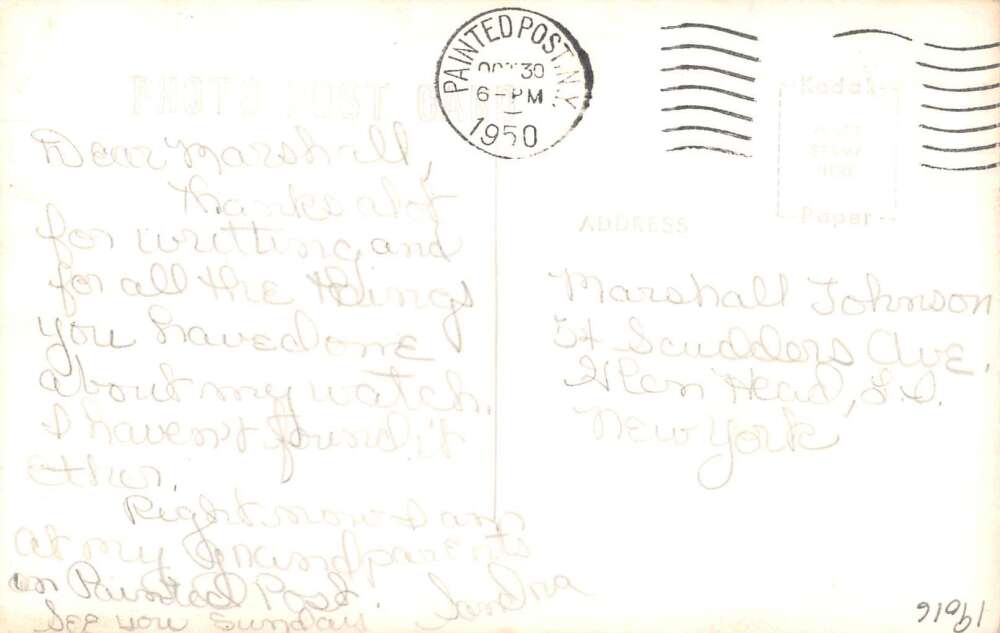 PAINTED POST, N.Y.
OCT 30
6-PM
1950
PHOTO POST CARD
Kodak
PLACE
STAMP
HERE
Paper
Dear Marshall,
Thanks alot
for writting and
for all the things
you have done
about my watch.
I haven't found it
ether.
Right now I am
at my grandparents
in Painted Post.
See you Sunday
Sandra
ADDRESS
Marshall Johnson
54 Scudders Ave.
Glen Head, L.I.
New York
19616